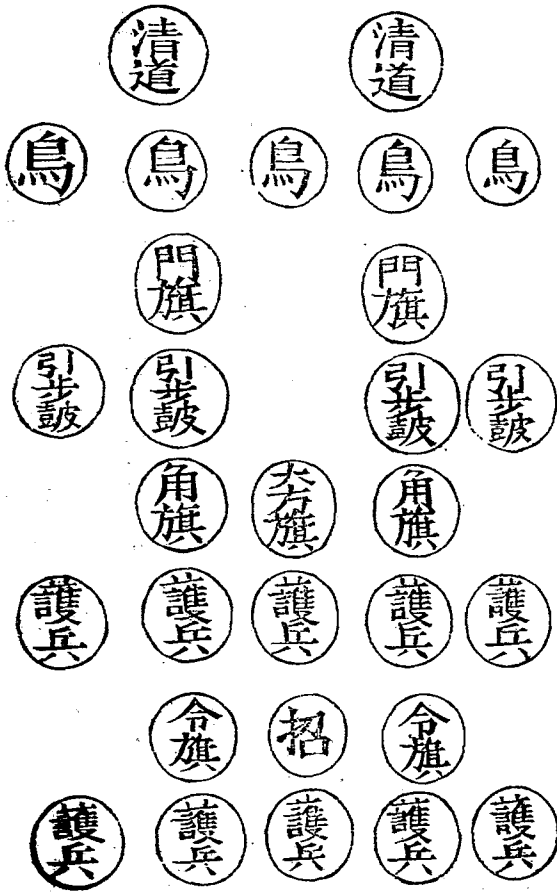 清道 清道
鳥 鳥 鳥 鳥 鳥
門旗 門旗
引步鼓 引步鼓 引步鼓 引步鼓
角旗 大方旗 角旗
護兵 護兵 護兵 護兵 護兵
令旗 招 令旗
護兵 護兵 護兵 護兵 護兵